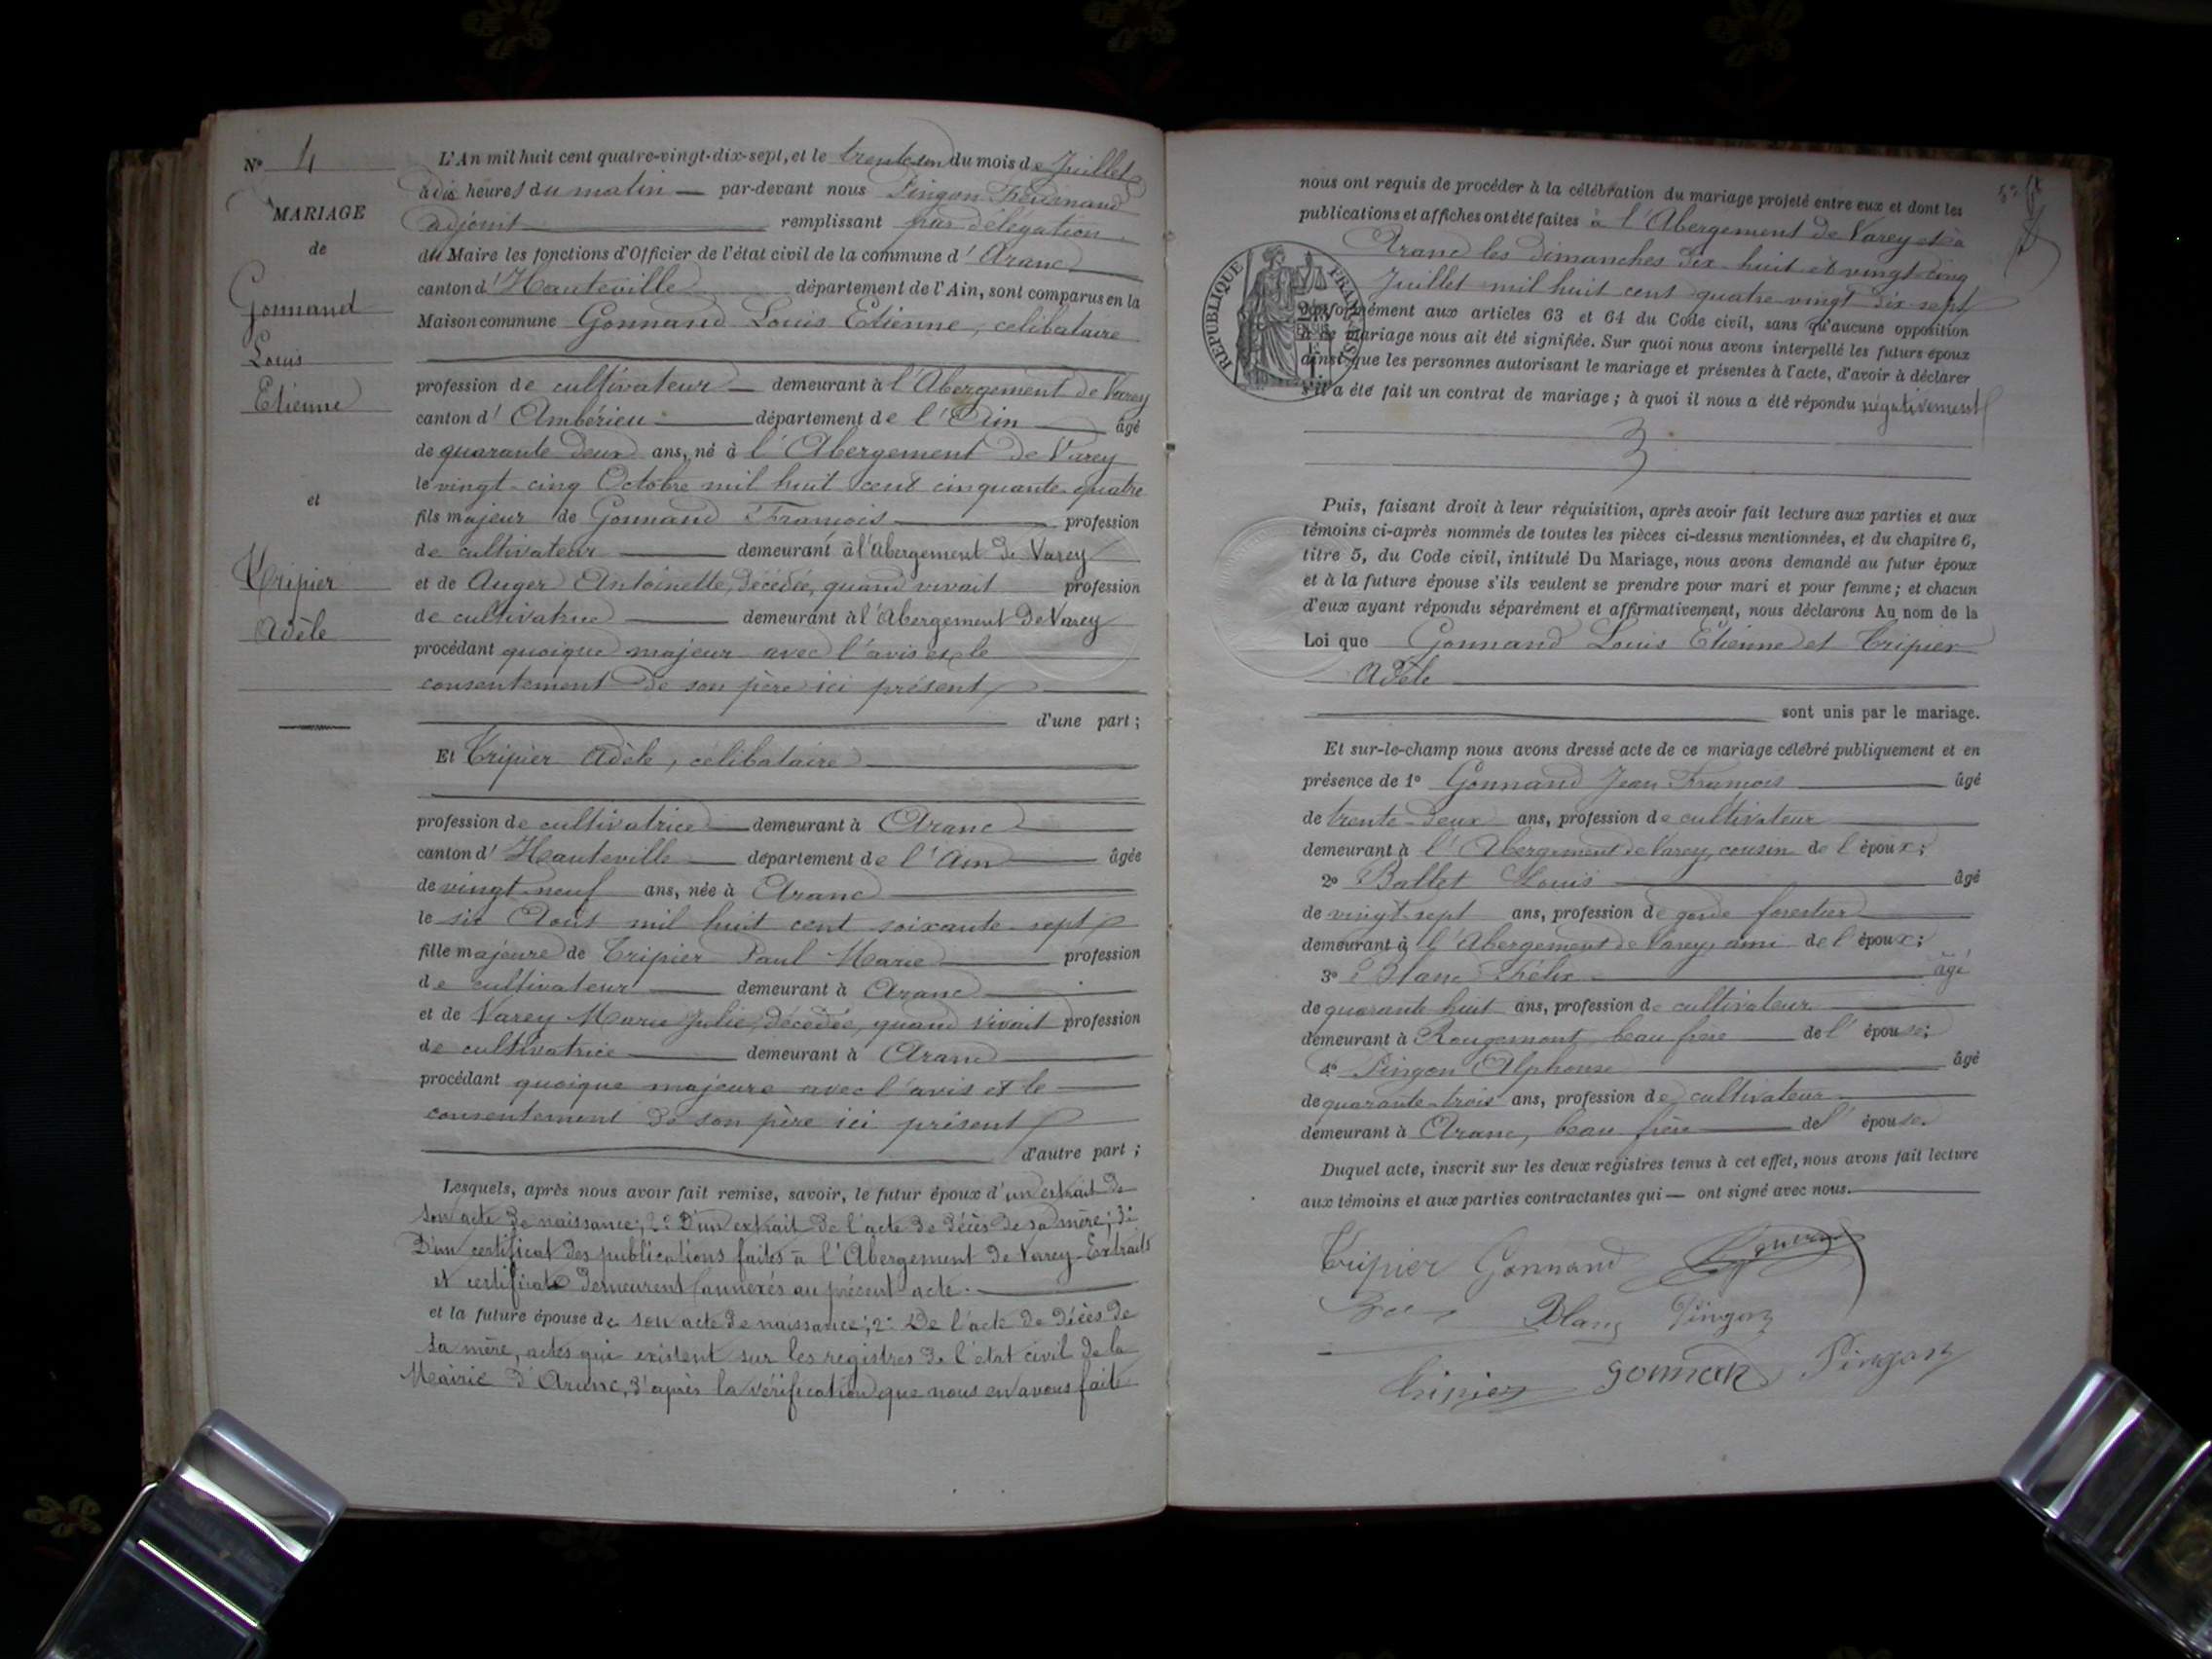 N° 4
MARIAGE
de
Gonnand
Louis
Etienne
et
Tripier
Adèle
L'An mil huit cent quatre-vingt-dix-sept, et le trente un du mois de Juillet
à dix heures du matin — par-devant nous Pingon Ferdinand
adjoint remplissant par délégation
du Maire les fonctions d'Officier de l'état civil de la commune d'Aranc
canton d'Hauteville département de l'Ain, sont comparus en la
Maison commune Gonnand Louis Etienne, célibataire
profession de cultivateur — demeurant à l'Abergement de Varey
canton d'Ambérieu département de l'Ain âgé
de quarante deux ans, né à l'Abergement de Varey
le vingt-cinq Octobre mil huit cent cinquante-quatre
fils majeur de Gonnand François profession
de cultivateur demeurant à l'Abergement de Varey
et de Auger Antoinette, décédée, quand vivait profession
de cultivatrice demeurant à l'Abergement de Varey
procédant quoique majeur avec l'avis et le
consentement de son père ici présent
d'une part ;
Et Tripier Adèle, célibataire
profession de cultivatrice — demeurant à Aranc
canton d'Hauteville — département de l'Ain âgée
de vingt-neuf ans, née à Aranc
le six Août mil huit cent soixante-sept
fille majeure de Tripier Paul Marie profession
de cultivateur demeurant à Aranc
et de Varey Marie Julie, décédée, quand vivait profession
de cultivatrice demeurant à Aranc
procédant quoique majeure avec l'avis et le
consentement de son père ici présent
d'autre part ;
Lesquels, après nous avoir fait remise, savoir, le futur époux d'un extrait de
son acte de naissance; 2° D'un extrait de l'acte de décès de sa mère; 3°
D'un certificat des publications faites à l'Abergement de Varey - Extraits
et certificats demeurent annexés au présent acte.
et la future épouse de son acte de naissance; 2° De l'acte de décès de
sa mère, actes qui existent sur les registres de l'état civil de la
Mairie d'Aranc, d'après la vérification que nous en avons faite
nous ont requis de procéder à la célébration du mariage projeté entre eux et dont les
publications et affiches ont été faites à l'Abergement de Varey et à
Aranc les dimanches dix-huit et vingt-cinq
Juillet mil huit cent quatre-vingt dix-sept
RÉPUBLIQUE FRANÇAISE
conformément aux articles 63 et 64 du Code civil, sans qu'aucune opposition
à ce mariage nous ait été signifiée. Sur quoi nous avons interpellé les futurs époux
ainsi que les personnes autorisant le mariage et présentes à l'acte, d'avoir à déclarer
s'il a été fait un contrat de mariage ; à quoi il nous a été répondu négativement
Puis, faisant droit à leur réquisition, après avoir fait lecture aux parties et aux
témoins ci-après nommés de toutes les pièces ci-dessus mentionnées, et du chapitre 6,
titre 5, du Code civil, intitulé Du Mariage, nous avons demandé au futur époux
et à la future épouse s'ils veulent se prendre pour mari et pour femme ; et chacun
d'eux ayant répondu séparément et affirmativement, nous déclarons Au nom de la
Loi que Gonnand Louis Etienne et Tripier
Adèle
sont unis par le mariage.
Et sur-le-champ nous avons dressé acte de ce mariage célébré publiquement et en
présence de 1° Gonnand Jean François âgé
de trente-deux ans, profession de cultivateur
demeurant à l'Abergement de Varey, cousin de l'époux ;
2° Ballet Louis âgé
de vingt-sept ans, profession de garde forestier
demeurant à l'Abergement de Varey, ami de l'époux ;
3° Blanc Félix âgé
de quarante huit ans, profession de cultivateur
demeurant à Rougemont, beau frère de l'épouse ;
4° Pingon Alphonse âgé
de quarante-trois ans, profession de cultivateur
demeurant à Aranc, beau frère de l'épouse.
Duquel acte, inscrit sur les deux registres tenus à cet effet, nous avons fait lecture
aux témoins et aux parties contractantes qui — ont signé avec nous.
Tripier Gonnand
Blanc Pingon
Tripier gonnand Pingon